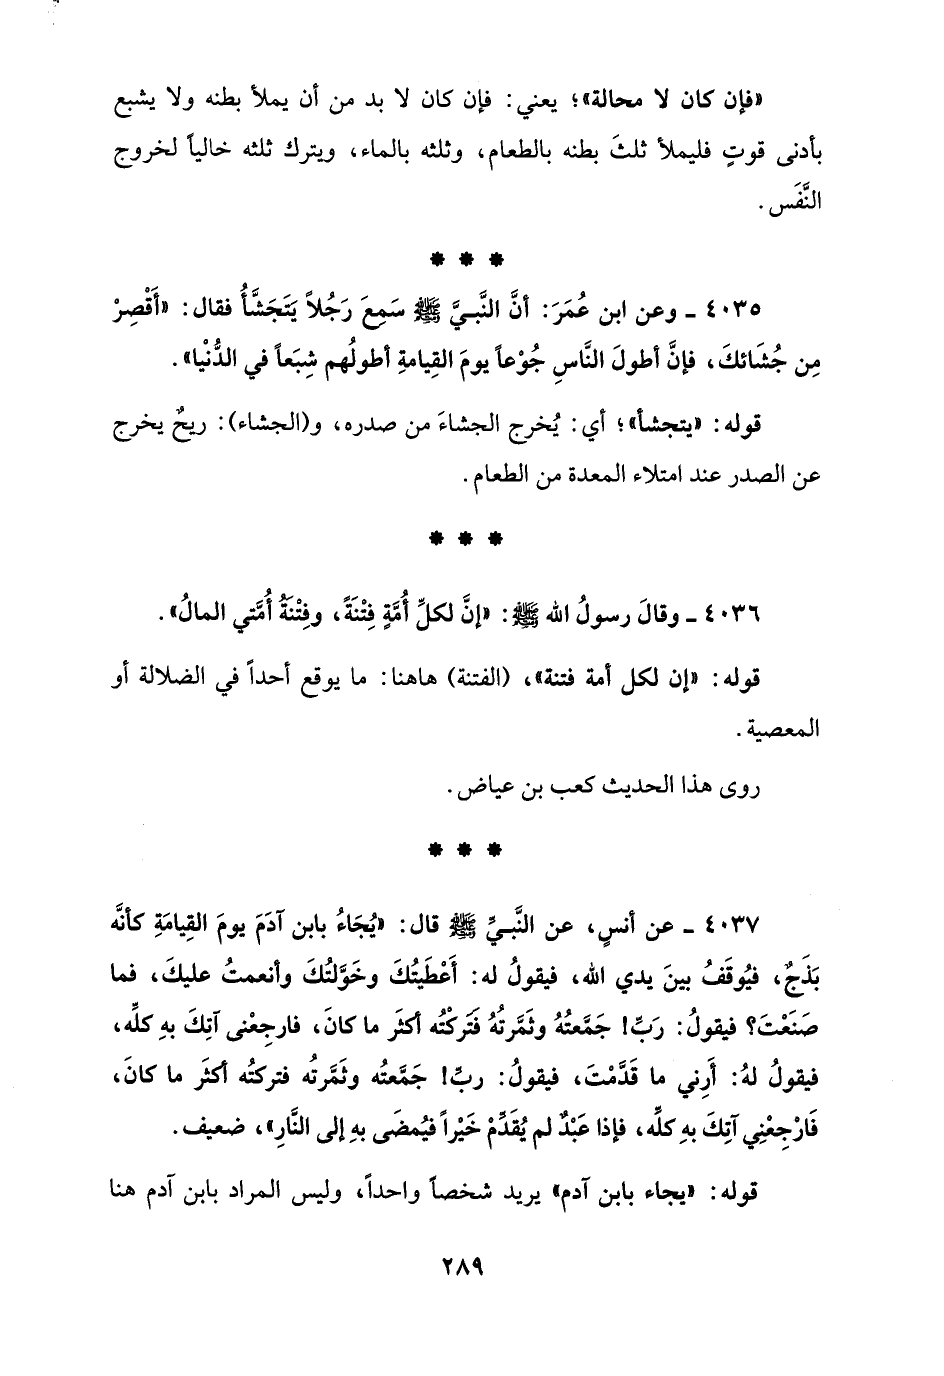 «فإن كان لا محالة»؛ يعني: فإن كان لا بد من أن يملأ بطنه ولا يشبع
بأدنى قوتٍ فليملأ ثلثَ بطنه بالطعام، وثلثه بالماء، ويترك ثلثه خالياً لخروج
النَّفَس.
* * *
٤٠٣٥ ـ وعن ابن عُمَرَ: أنَّ النَّبيَّ ﷺ سَمِعَ رَجُلاً يَتَجَشَّأُ فقال: «أَقْصِرْ
مِن جُشَائكَ، فإنَّ أطولَ النَّاسِ جُوْعاً يومَ القِيامةِ أطولُهم شِبَعاً في الدُّنْيا».
قوله: «يتجشأ»؛ أي: يُخرج الجشاءَ من صدره، و(الجشاء): ريحٌ يخرج
عن الصدر عند امتلاء المعدة من الطعام.
* * *
٤٠٣٦ ـ وقالَ رسولُ الله ﷺ: «إنَّ لكلِّ أُمَّةٍ فِتْنَةً، وفِتْنَةُ أُمَّتي المالُ».
قوله: «إن لكل أمة فتنة»، (الفتنة) هاهنا: ما يوقع أحداً في الضلالة أو
المعصية.
روى هذا الحديث كعب بن عياض.
* * *
٤٠٣٧ ـ عن أنسٍ، عن النَّبيِّ ﷺ قال: «يُجَاءُ بابن آدَمَ يومَ القِيامَةِ كأنَّه
بَذَجٌ، فيُوقَفُ بينَ يدي الله، فيقولُ له: أَعْطَيتُكَ وخَوَّلتُكَ وأنعمتُ عليكَ، فما
صَنَعْتَ؟ فيقولُ: رَبِّ! جَمَّعتُهُ وثَمَّرتُهُ فَتَركْتُه أكثرَ ما كانَ، فارجِعْنى آتِكَ بهِ كلِّه،
فيقولُ لهُ: أَرِني ما قَدَّمْتَ، فيقولُ: ربِّ! جَمَّعتُه وثَمَّرتُه فتركتُه أكثرَ ما كانَ،
فَارْجِعْنِي آتِكَ بهِ كلِّه، فإذا عَبْدٌ لم يُقَدِّمْ خَيْراً فيُمضَى بهِ إلى النَّارِ»، ضعيف.
قوله: «يجاء بابن آدم» يريد شخصاً واحداً، وليس المراد بابن آدم هنا
٢٨٩